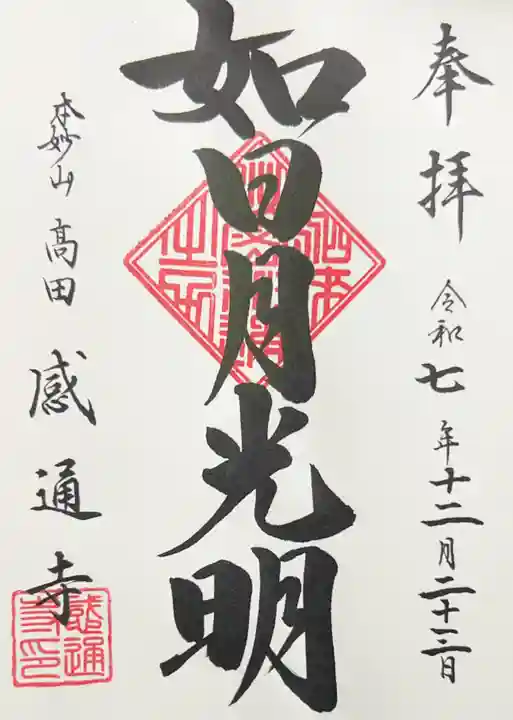 奉拝
令和七年十二月二十三日
如日月光明
本妙山 高田 感通寺
感通寺印